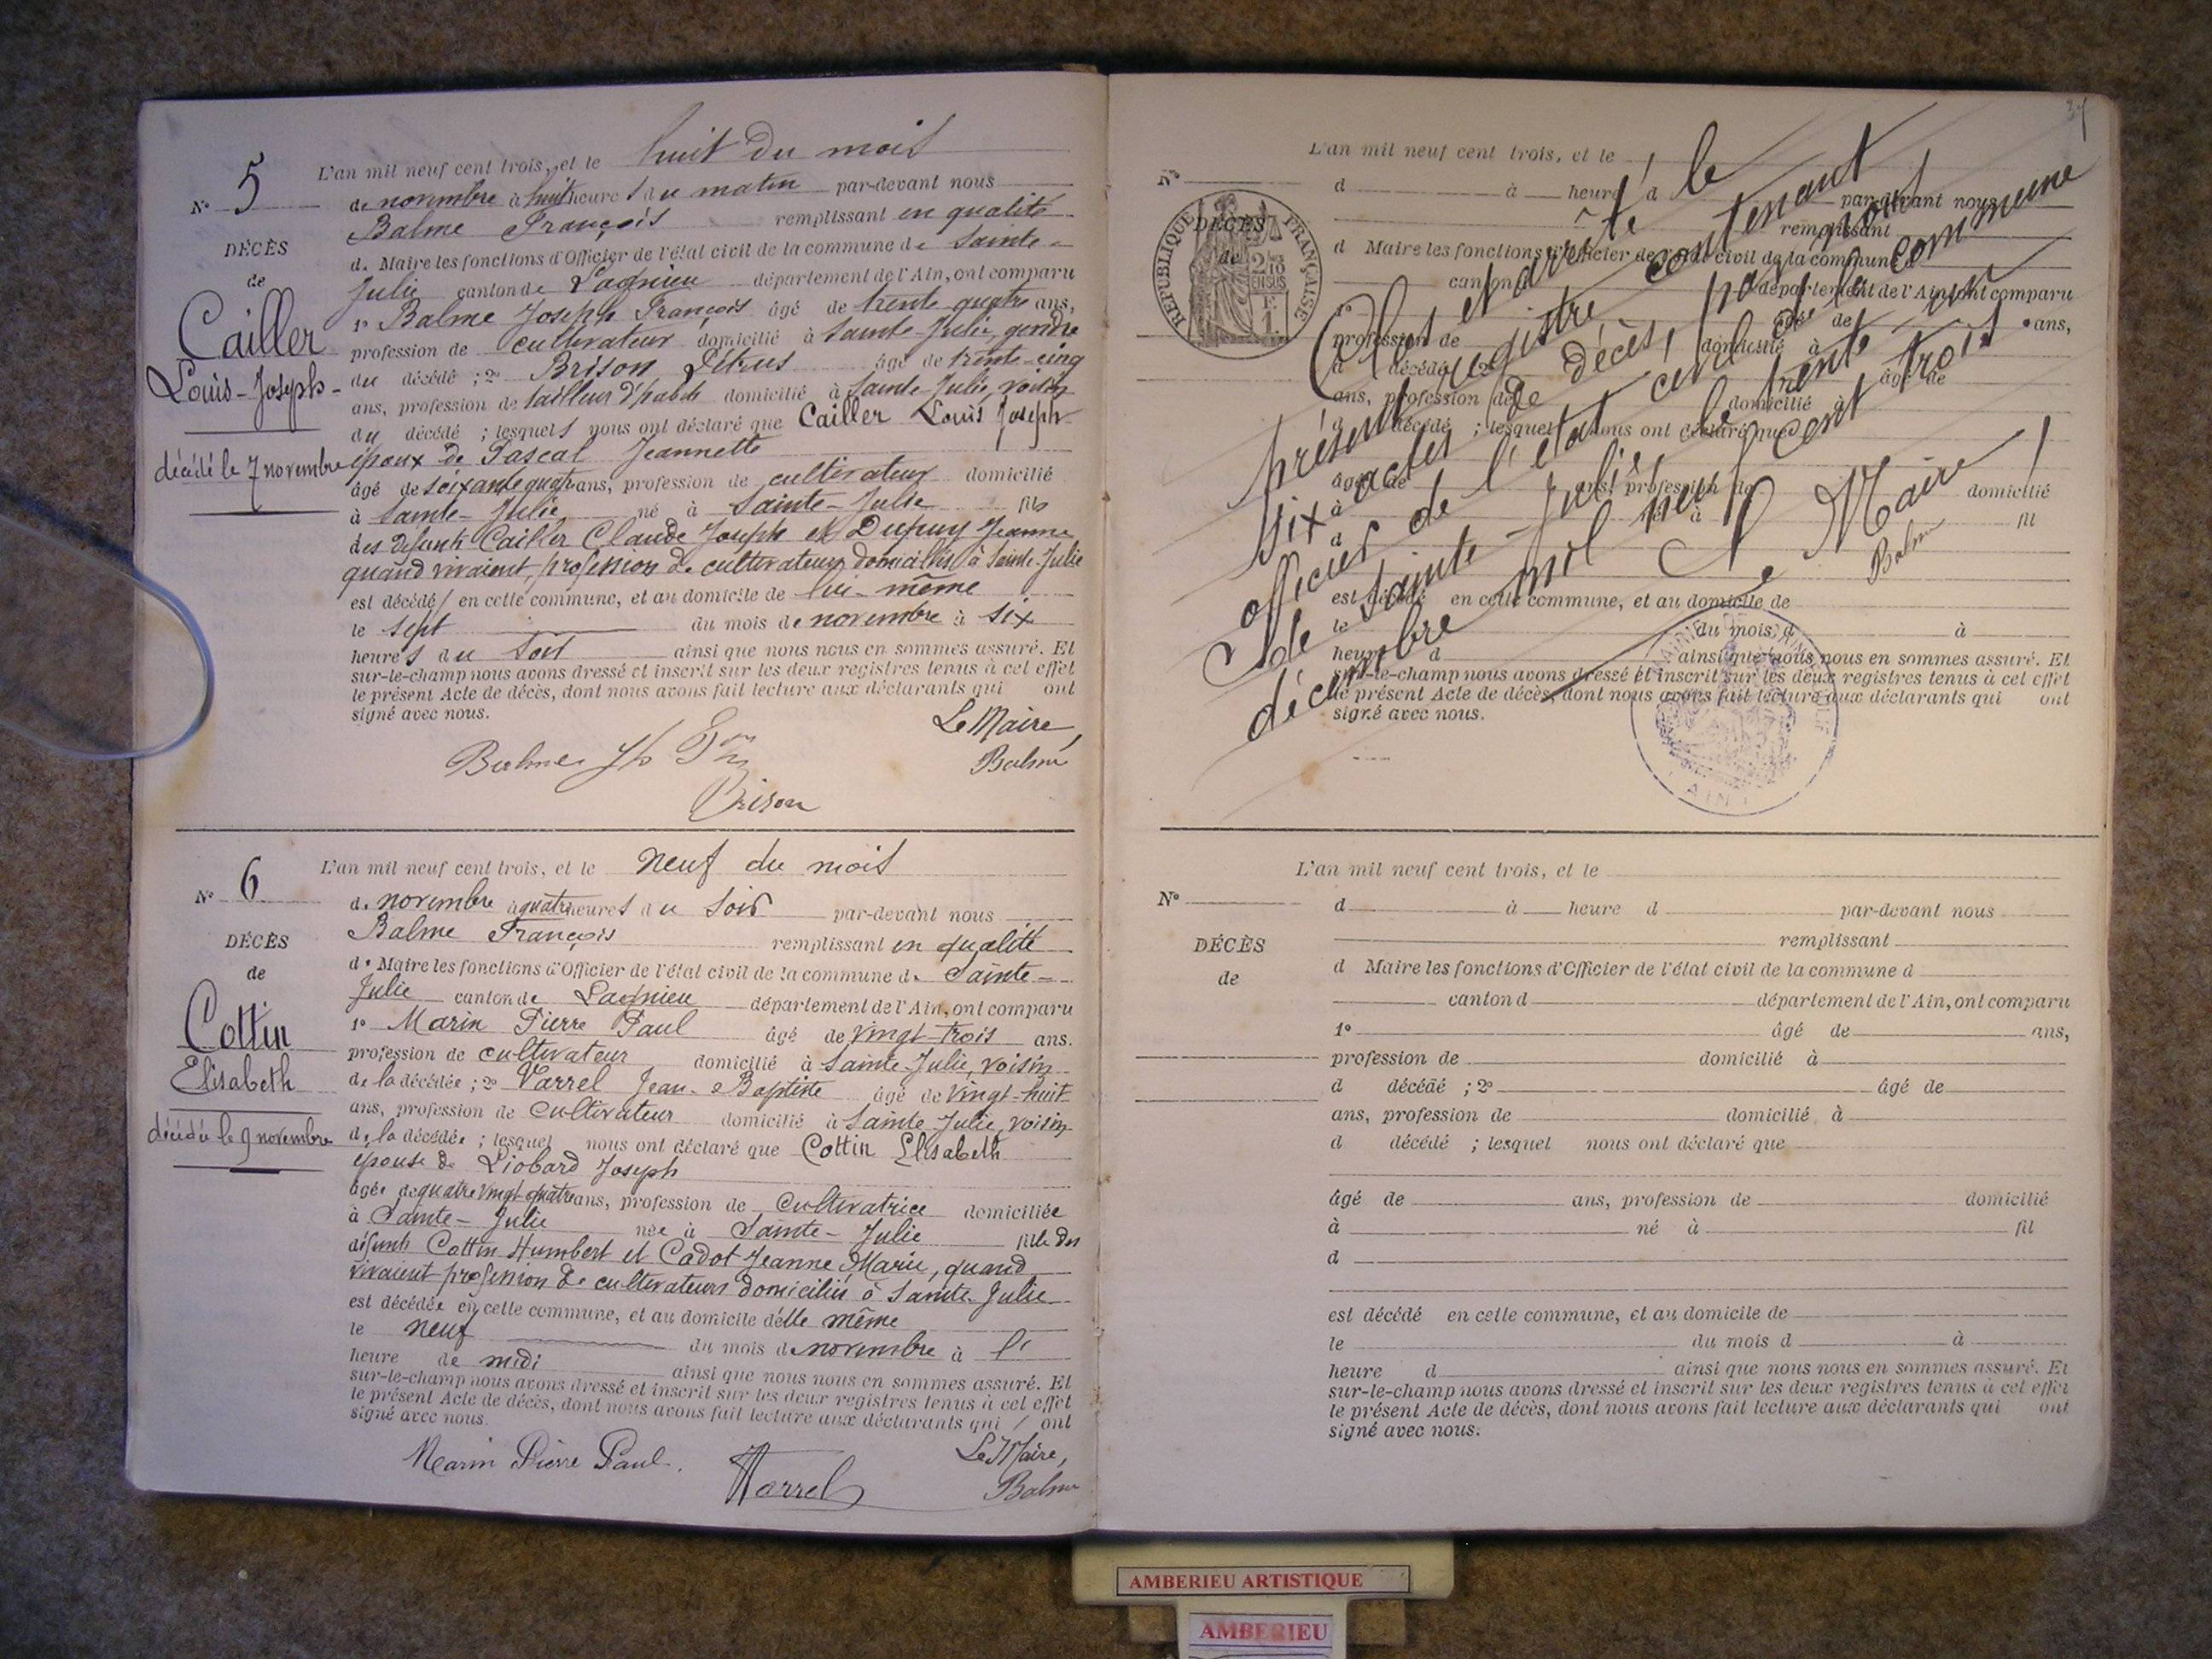 L'an mil neuf cent trois, et le huit du mois
N° 5
de novembre à huit heures du matin par-devant nous
Balme François remplissant en qualité
DÉCÈS
de
Cailler
Louis-Joseph
décédé le 7 novembre
de Maire les fonctions d'Officier de l'état civil de la commune de Sainte-
Julie canton de Lagnieu département de l'Ain, ont comparu
1° Balme Joseph François âgé de trente quatre ans,
profession de cultivateur domicilié à Sainte-Julie, gendre
du décédé ; 2° Brison Pétrus âgé de trente-cinq
ans, profession de tailleur d'habits domicilié à Sainte-Julie, voisin
du décédé ; lesquels nous ont déclaré que Cailler Louis Joseph
époux de Pascal Jeannette
âgé de soixante quatre ans, profession de cultivateur domicilié
à Sainte-Julie né à Sainte-Julie fils
des défunts Cailler Claude Joseph et Dupuy Jeanne
quand vivaient, profession de cultivateurs domiciliés à Sainte-Julie
est décédé en cette commune, et au domicile de lui-même
le sept du mois de novembre à six
heures du soir ainsi que nous nous en sommes assuré. Et
sur-le-champ nous avons dressé et inscrit sur les deux registres tenus à cet effet
le présent Acte de décès, dont nous avons fait lecture aux déclarants qui ont
signé avec nous.
Le Maire,
Balme
Balme
Brison
L'an mil neuf cent trois, et le neuf du mois
N° 6
de novembre à quatre heures du soir par-devant nous
Balme François remplissant en qualité
DÉCÈS
de
Cottin
Elisabeth
décédée le 9 novembre
de Maire les fonctions d'Officier de l'état civil de la commune de Sainte-
Julie canton de Lagnieu département de l'Ain, ont comparu
1° Marin Pierre Paul âgé de vingt-trois ans.
profession de cultivateur domicilié à Sainte-Julie, voisin
de la décédée ; 2° Varrel Jean-Baptiste âgé de vingt-huit
ans, profession de cultivateur domicilié à Sainte-Julie, voisin
de la décédée ; lesquel nous ont déclaré que Cottin Elisabeth
épouse de Liobard Joseph
âgée de quatre vingt-quatre ans, profession de cultivatrice domiciliée
à Sainte-Julie née à Sainte-Julie fille des
défunts Cottin Humbert et Cadot Jeanne Marie, quand
vivaient profession de cultivateurs domiciliés à Sainte-Julie
est décédée en cette commune, et au domicile d'elle même
le neuf du mois de novembre à l'
heure de midi ainsi que nous nous en sommes assuré. Et
sur-le-champ nous avons dressé et inscrit sur les deux registres tenus à cet effet
le présent Acte de décès, dont nous avons fait lecture aux déclarants qui ont
signé avec nous.
Marin Pierre Paul.
Varrel
Le Maire,
Balme
L'an mil neuf cent trois, et le
N°
d à heure d par-devant nous
remplissant
DÉCÈS
de
RÉPUBLIQUE FRANÇAISE
d Maire les fonctions d'Officier de l'état civil de la commune d
canton d département de l'Ain, ont comparu
1° âgé de ans,
profession de domicilié à
d décédé ; 2° âgé de
ans, profession de domicilié à
d décédé ; lesquel nous ont déclaré que
âgé de ans, profession de domicilié
à né à fil
d
est décédé en cette commune, et au domicile de
le du mois d à
heure d ainsi que nous nous en sommes assuré. Et
sur-le-champ nous avons dressé et inscrit sur les deux registres tenus à cet effet
le présent Acte de décès, dont nous avons fait lecture aux déclarants qui ont
signé avec nous.
Clos et arrêté le
présent registre contenant
six actes de décès, par nous
officier de l'état civil de la commune
de Sainte-Julie, le trente-un
décembre mil neuf cent trois.
Le Maire
Balme
AIN
L'an mil neuf cent trois, et le
N°
d à heure d par-devant nous
remplissant
DÉCÈS
de
d Maire les fonctions d'Officier de l'état civil de la commune d
canton d département de l'Ain, ont comparu
1° âgé de ans,
profession de domicilié à
d décédé ; 2° âgé de
ans, profession de domicilié à
d décédé ; lesquel nous ont déclaré que
âgé de ans, profession de domicilié
à né à fil
d
est décédé en cette commune, et au domicile de
le du mois d à
heure d ainsi que nous nous en sommes assuré. Et
sur-le-champ nous avons dressé et inscrit sur les deux registres tenus à cet effet
le présent Acte de décès, dont nous avons fait lecture aux déclarants qui ont
signé avec nous.
AMBERIEU ARTISTIQUE
AMBERIEU